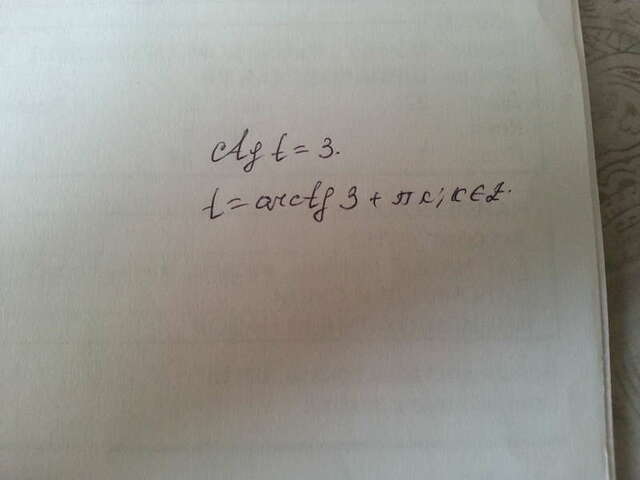 ctg t = 3.
t = arcctg 3 + πк; к ∈ Z.